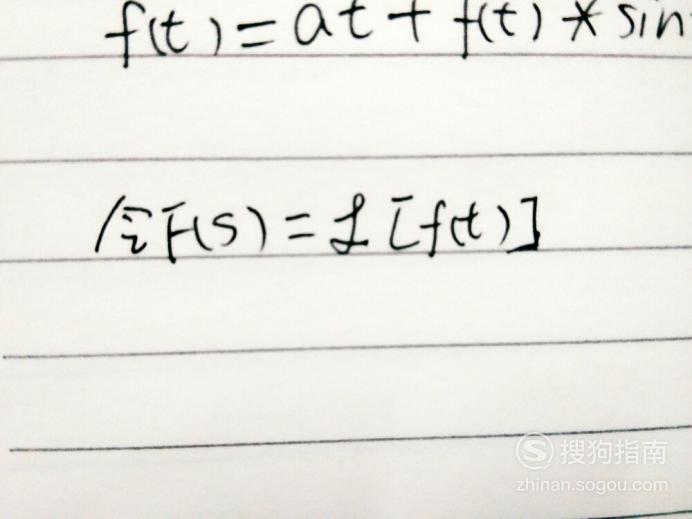 f(t) = at + f(t) * sin
令F(s) = ℒ[f(t)]
搜狗指南
zhinan.sogou.com